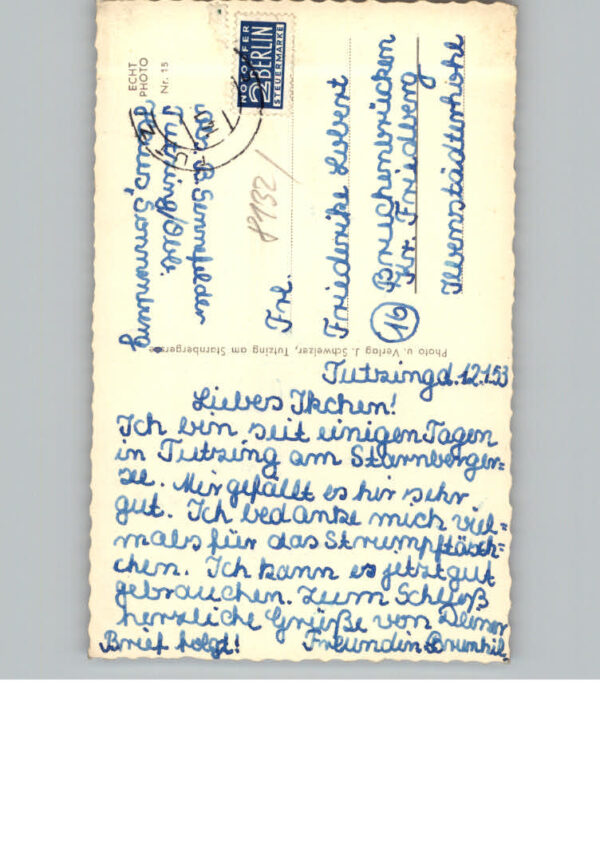 Tutzing d. 12.1.53
Liebes Ikchen!
Ich bin seit einigen Tagen
in Tutzing am Starnberger-
see. Mir gefällt es hir sehr
gut. Ich bedanke mich viel-
mals für das Strumpftäsch-
chen. Ich kann es jetzt gut
gebrauchen. Zum Schluß
herzliche Grüße von Deiner
Freundin Brunhil.
Brief folgt!
Photo u. Verlag J. Schweizer, Tutzing am Starnbergersee
ECHT
PHOTO
Nr. 15
Tutzing/Obb.
Haus
NOTOPFER
2 BERLIN
STEUERMARKE
8132
Frl.
Friederike
16
Bruchenbrücken
Kr. Friedberg
Ilbenstädterhöhe